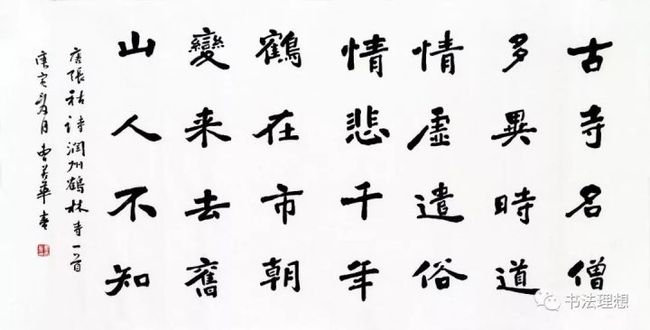 古寺名僧
多異時道
情虛遣俗
情悲千年
鶴在市朝
變来去舊
山人不知
唐張祜詩潤州鶴林寺一首
庚寅夏月
书法理想